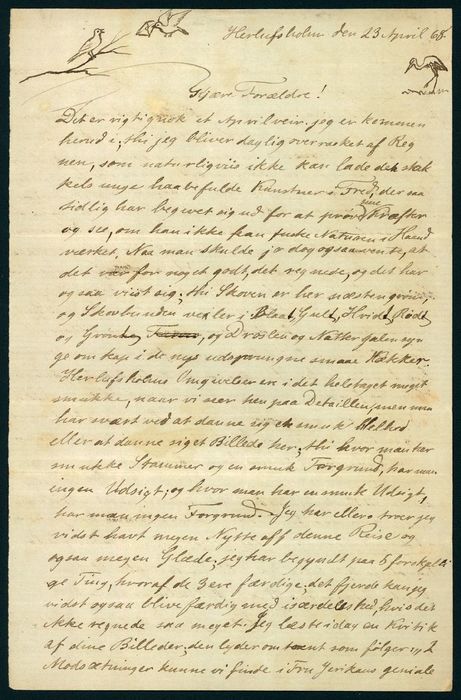 Herlufsholm den 23 April 68.
Kjære Forældre!
Det er rigtignok et Aprilveir, jeg er kommen
herud i, thi jeg bliver daglig overrasket af Reg
nen, som naturligviis ikke kan lade det stak
kels unge haabefulde Kunstner i Fred, der saa
sidlig har begivet sig ud for at prøve sine Kræfter
og see, om han ikke kan fuske Naturen i Haand
værket. Naa man skulde jo dog ogsaa vente, at
det var for noget godt, det regnede, og det har
ogsaa viist sig, thi Skoven er her næsten grøn,
og Skovbunden vexler i Blaat, Guult, Hvidt, Rødt
og Grønt, og Droslen og Nattergalen syn
ge om kap i de nys udsprungne smaae Hækker.
Herlufsholms Omgivelser er i det heletaget meget
smukke, naar vi seer hen paa Detaillen, men man
har svært ved at danne sig et smuk Helhed
eller at danne sig et Billede her, thi hvor man har
smukke Stammer og en smuk Forgrund, har man
ingen Udsigt; og hvor man har en smuk Udsigt,
har man ingen Forgrund. Jeg har ellers troer jeg
vidst havt megen Nytte aff denne Reise og
ogsaa megen Glæde, jeg har begyndt paa 5 forskjelli
ge Ting, hvoraf de 3 ere færdige; det fjerde kan jeg
vidst ogsaa blive færdig med isærdeleshed, hvis det
ikke regnede saa meget. Jeg læste idag en Kritik
af dine Billeder; den lyder omtrent som følger: "2
Modsætninger kunne vi finde i Fru Jerichaus geniale